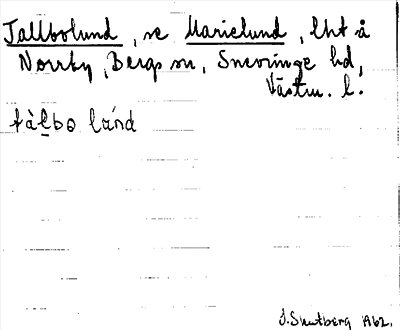 Tallbolund, se Marielund, lht å
Norrby, Bergs sn, Snevringe hd,
Västm. l.
tàḷbo lúnd
J. Swedberg 1962.